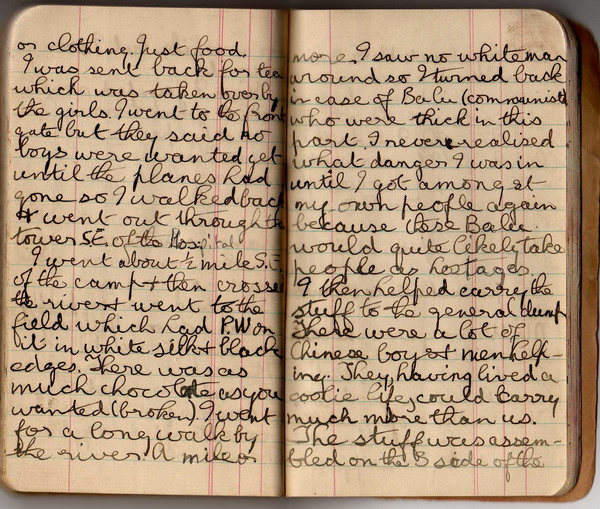 or clothing. Just food
I was sent back for tea
which was taken over by
the girls. I went to the front
gate but they said no
boys were wanted yet
until the planes had
gone so I walked back
& went out through the
tower S.E. of the Hospital
I went about ½ mile S.E.
of the camp & then crossed
the river & went to the
field which had P.W on
it in white silk & black
edges. There was as
much chocolate as you
wanted (broken). I went
for a long walk by
the river. A mile or
more. I saw no white man
around so I turned back
in case of Balu (communists
who were thick in this
part. I never realised
what danger I was in
until I got among st
my own people again
because these Balu
would quite likely take
people as hostages.
I then helped carry the
stuff to the general dump
There were a lot of
Chinese boys & men help-
ing. They, having lived a
coolie life, could carry
much more than us.
The stuff was assem-
bled on the side of the